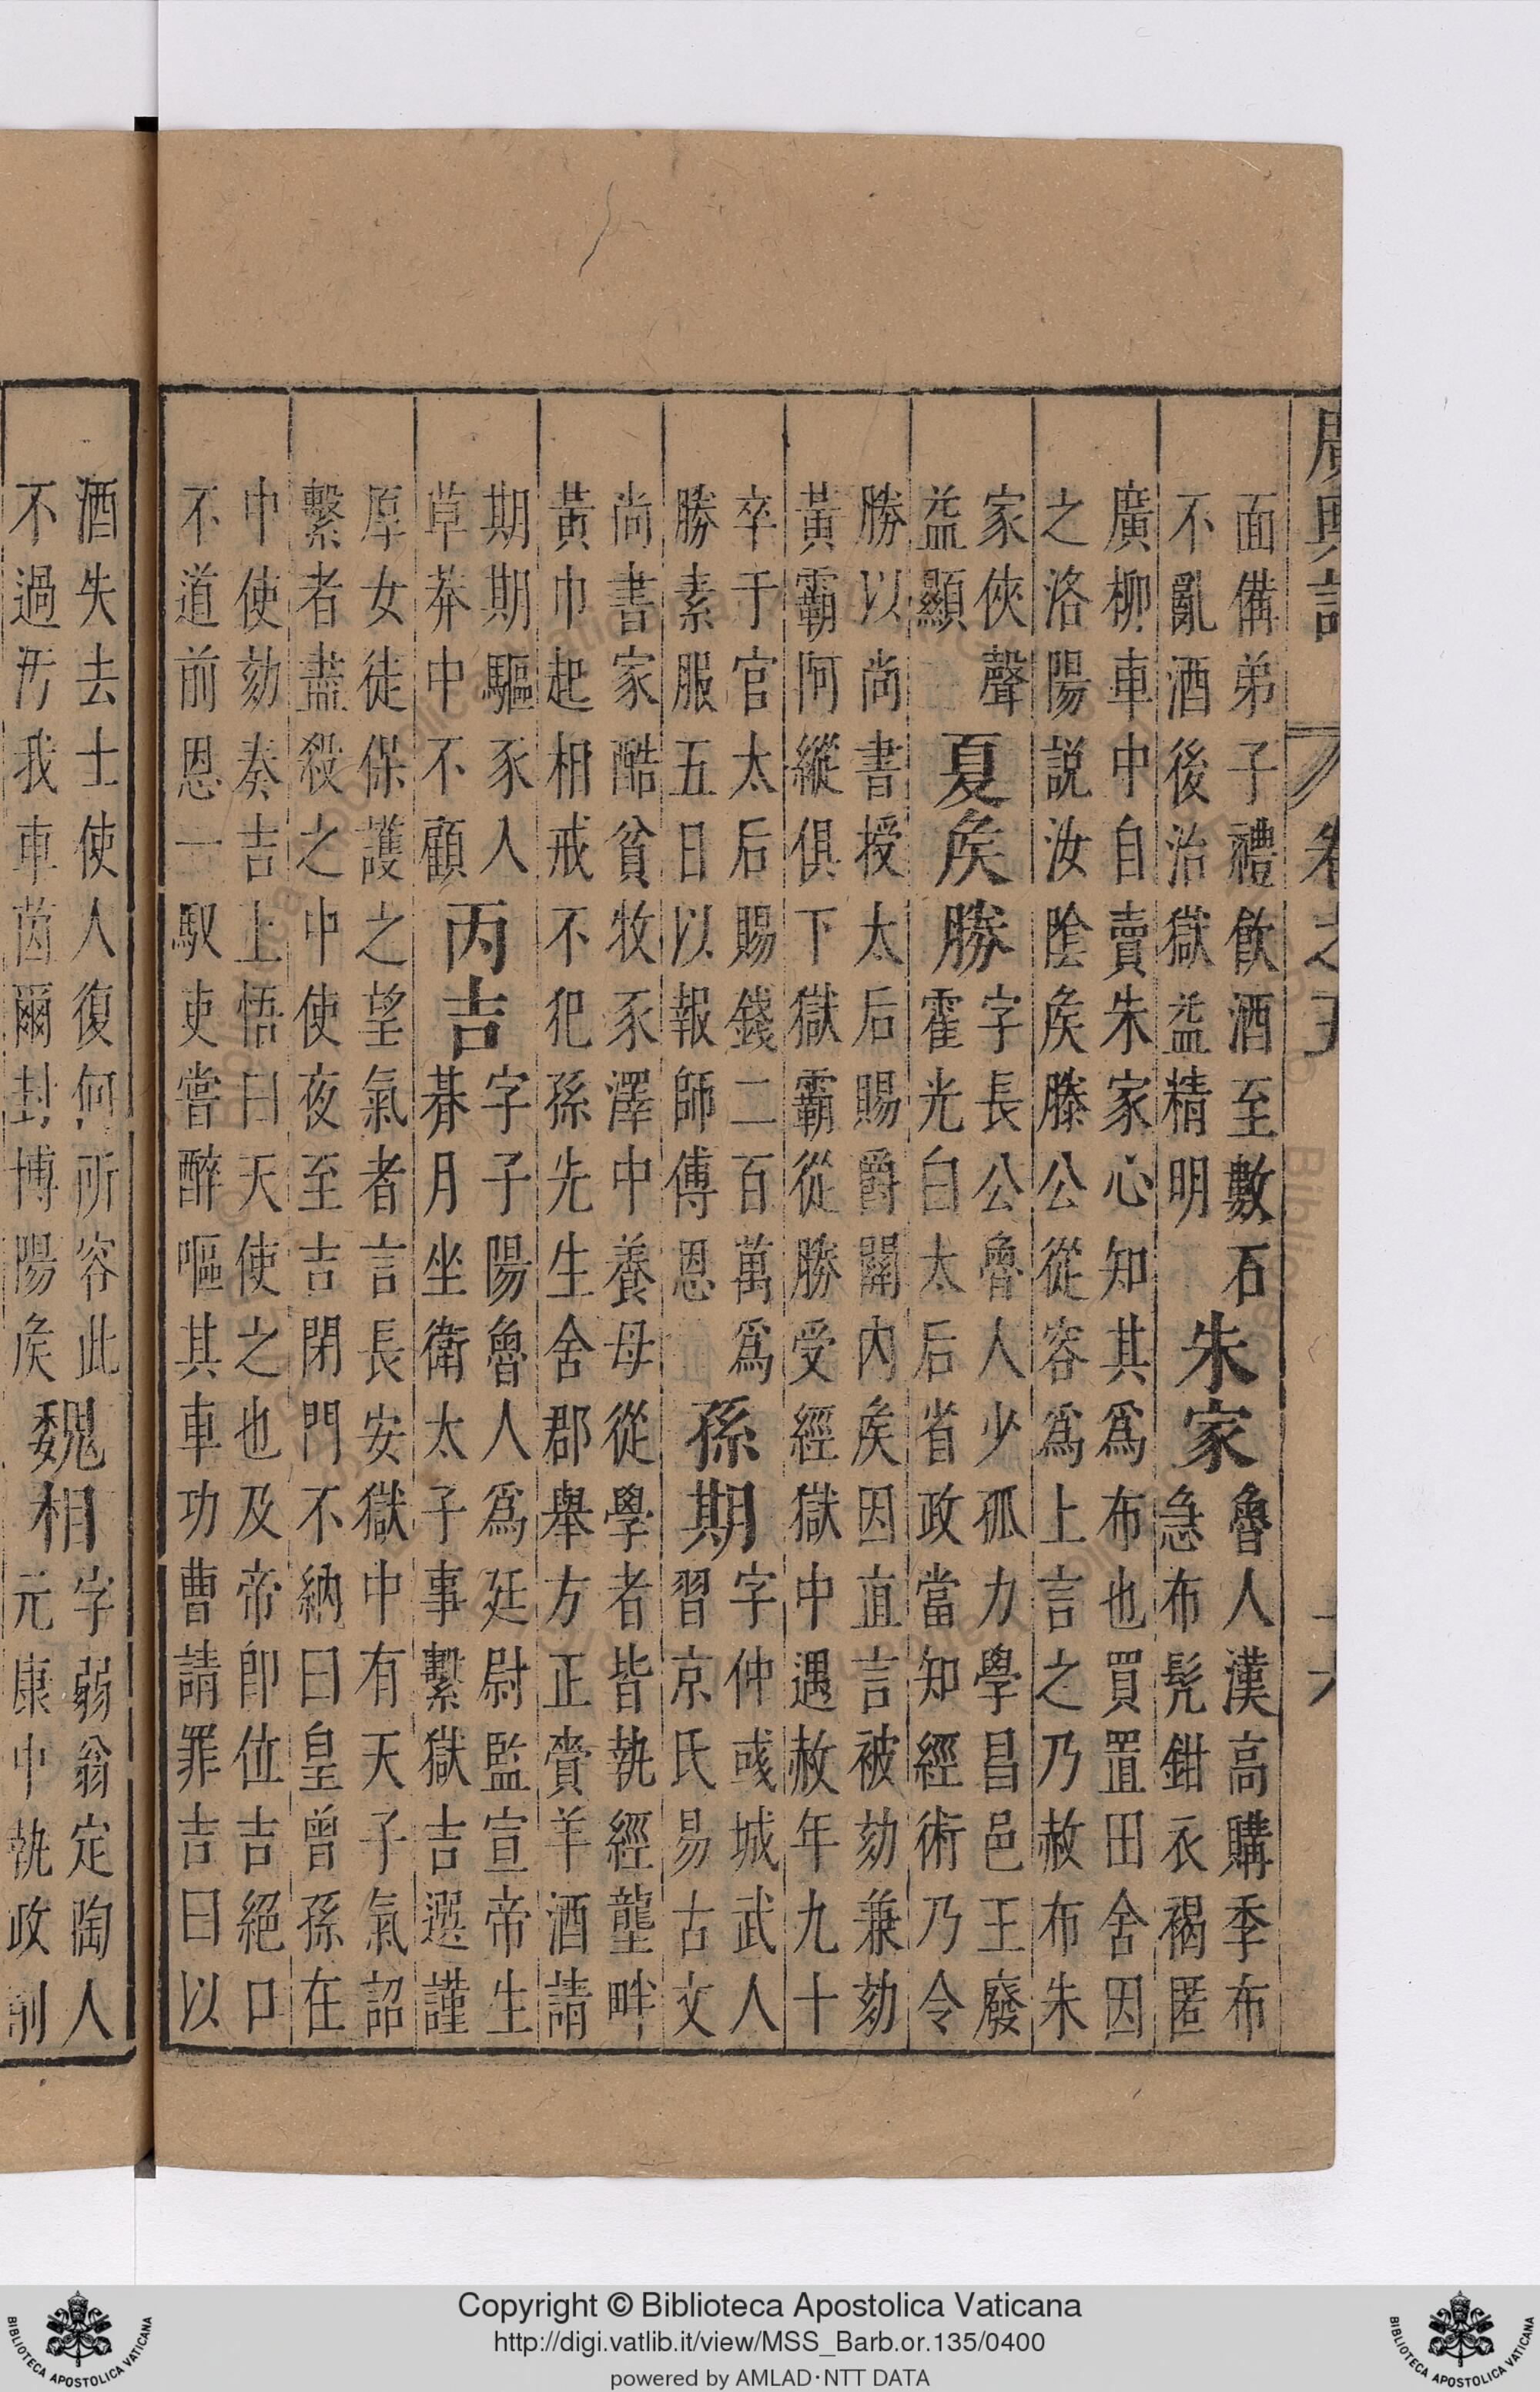 廣輿記 卷之五
面備弟子禮飲酒至數石
不亂酒後治獄益精明
朱家
魯人漢高購季布
急布髠鉗衣褐匿
廣柳車中自賣朱家心知其爲布也買置田舍因
之洛陽説汝陰矦滕公從容爲上言之乃赦布朱
家俠聲
益顯
夏矦勝
字長公魯人少孤力學昌邑王廢
霍光白太后省政當知經術乃令
勝以尚書授太后賜爵關內矦因直言被劾兼劾
黃霸阿縱俱下獄霸從勝受經獄中遇赦年九十
卒于官太后賜錢二百萬爲
勝素服五日以報師傅恩
孫期
字仲彧城武人
習京氏易古文
尚書家酷貧牧豕澤中養母從學者皆執經壟畔
黃巾起相戒不犯孫先生舍郡舉方正賫羊酒請
期期驅豕入
草莽中不顧
丙吉
字子陽魯人爲廷尉監宣帝生
朞月坐衛太子事繫獄吉選謹
厚女徒保護之望氣者言長安獄中有天子氣詔
繫者盡殺之中使夜至吉閉門不納曰皇曾孫在
中使劾奏吉上悟曰天使之也及帝卽位吉絕口
不道前恩一馭吏嘗醉嘔其車功曹請罪吉曰以
酒失去士使人復何所容此
不過汚我車茵爾封博陽矦
魏相
字弱翁定陶人
元康中執政剛
Copyright © Biblioteca Apostolica Vaticana
http://digi.vatlib.it/view/MSS_Barb.or.135/0400
powered by AMLAD·NTT DATA
BIBLIOTECA APOSTOLICA VATICANA
BIBLIOTECA APOSTOLICA VATICANA